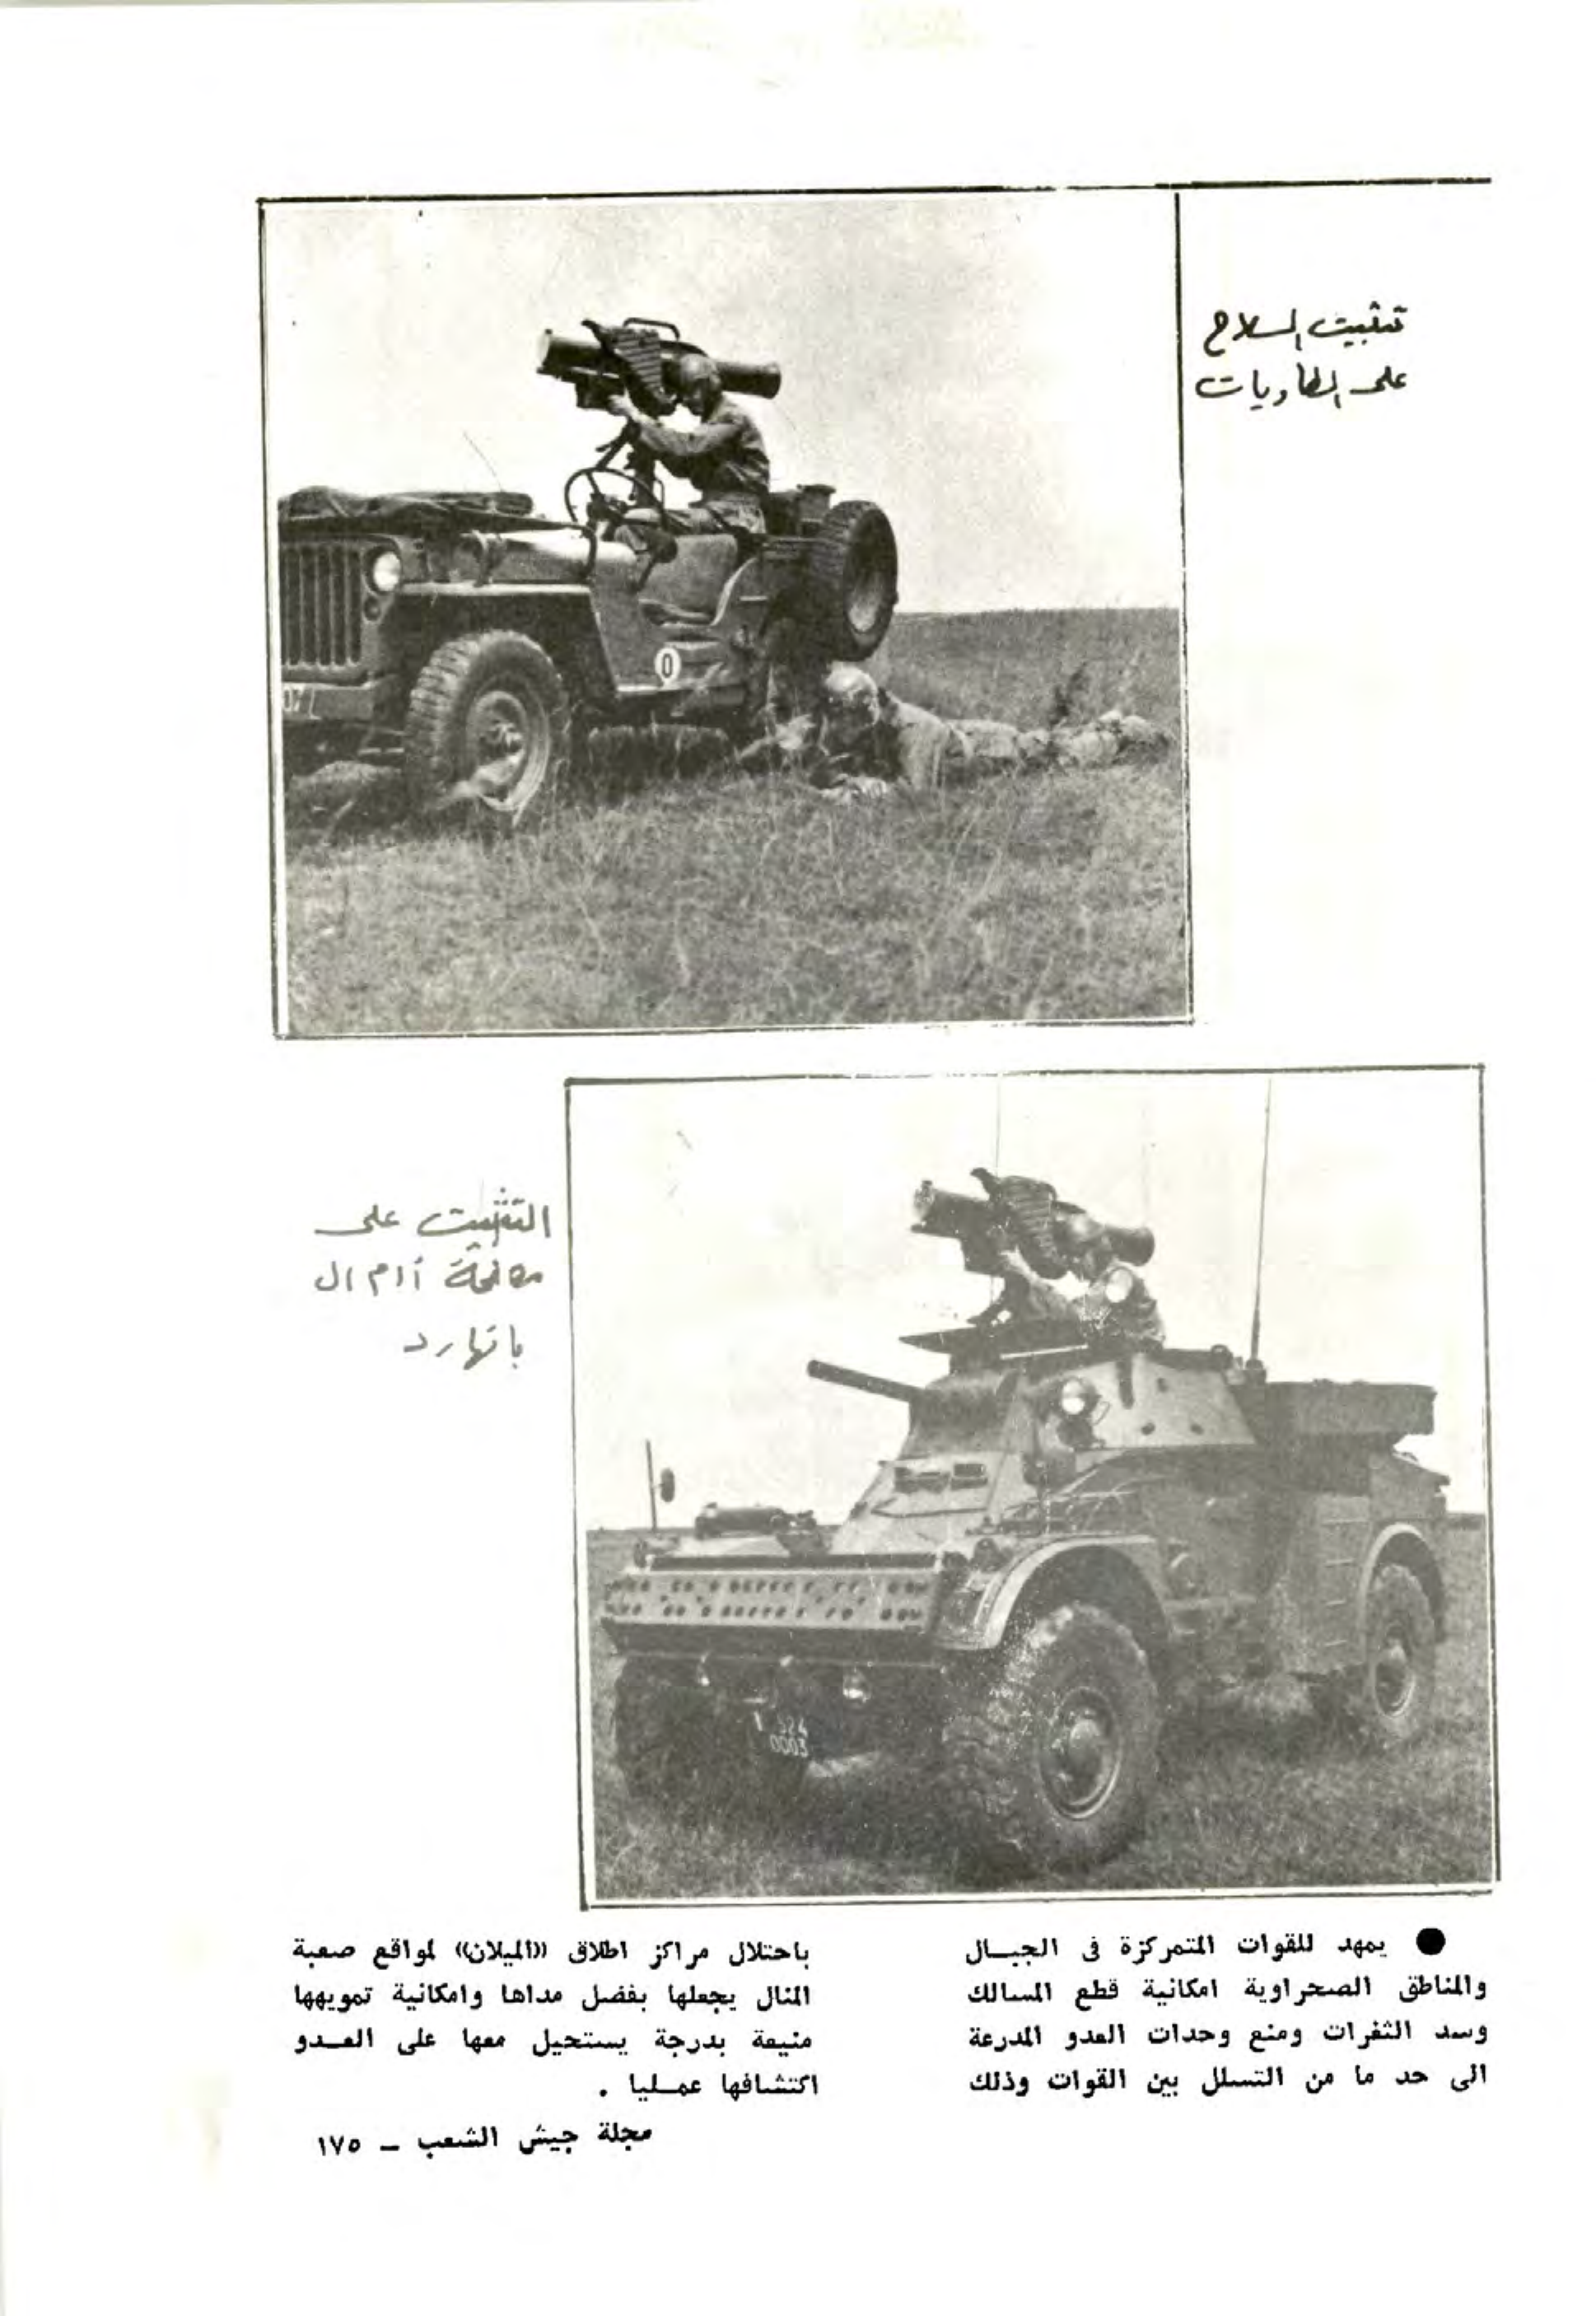 تثبيت السلاح
على الطاويات
التثبيت على
مصفحة أ ا م ا ل
بانهارد
07
0
324
0003
● يمهد للقوات المتمركزة في الجبـال
والمناطق الصحراوية امكانية قطع المسالك
وسد الثغرات ومنع وحدات العدو المدرعة
الى حد ما من التسلل بين القوات وذلك
باحتلال مراكز اطلاق «الميلان» لمواقع صعبة
المنال يجعلها بفضل مداها وامكانية تمويهها
منيعة بدرجة يستحيل معها على العـدو
اكتشافها عمـليا .
مجلة جيش الشعب ــ ١٧٥